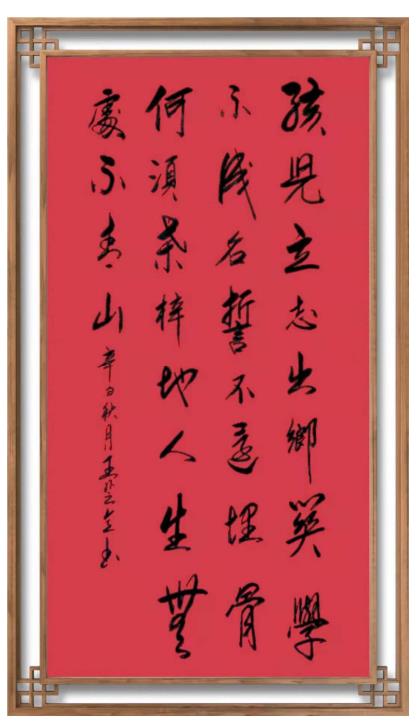 孩兒立志出鄉關學
不成名誓不還埋骨
何須桑梓地人生無
處不青山 辛丑秋月王书